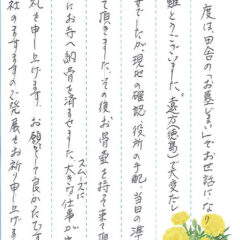 度は田舎の「お墓じまい」でお世話になり
難とうございました。遠方(徳島)で大変だし
でしたが、現地の確認、役所の手配、当日の準
て頂きました。その後お骨壷を持って来て頂
にお寺へ納骨をスムーズに済ませました。大きな仕事が
礼を申し上げます。お願いして良かったです
社のますますのご発展をお祈り申し上げま